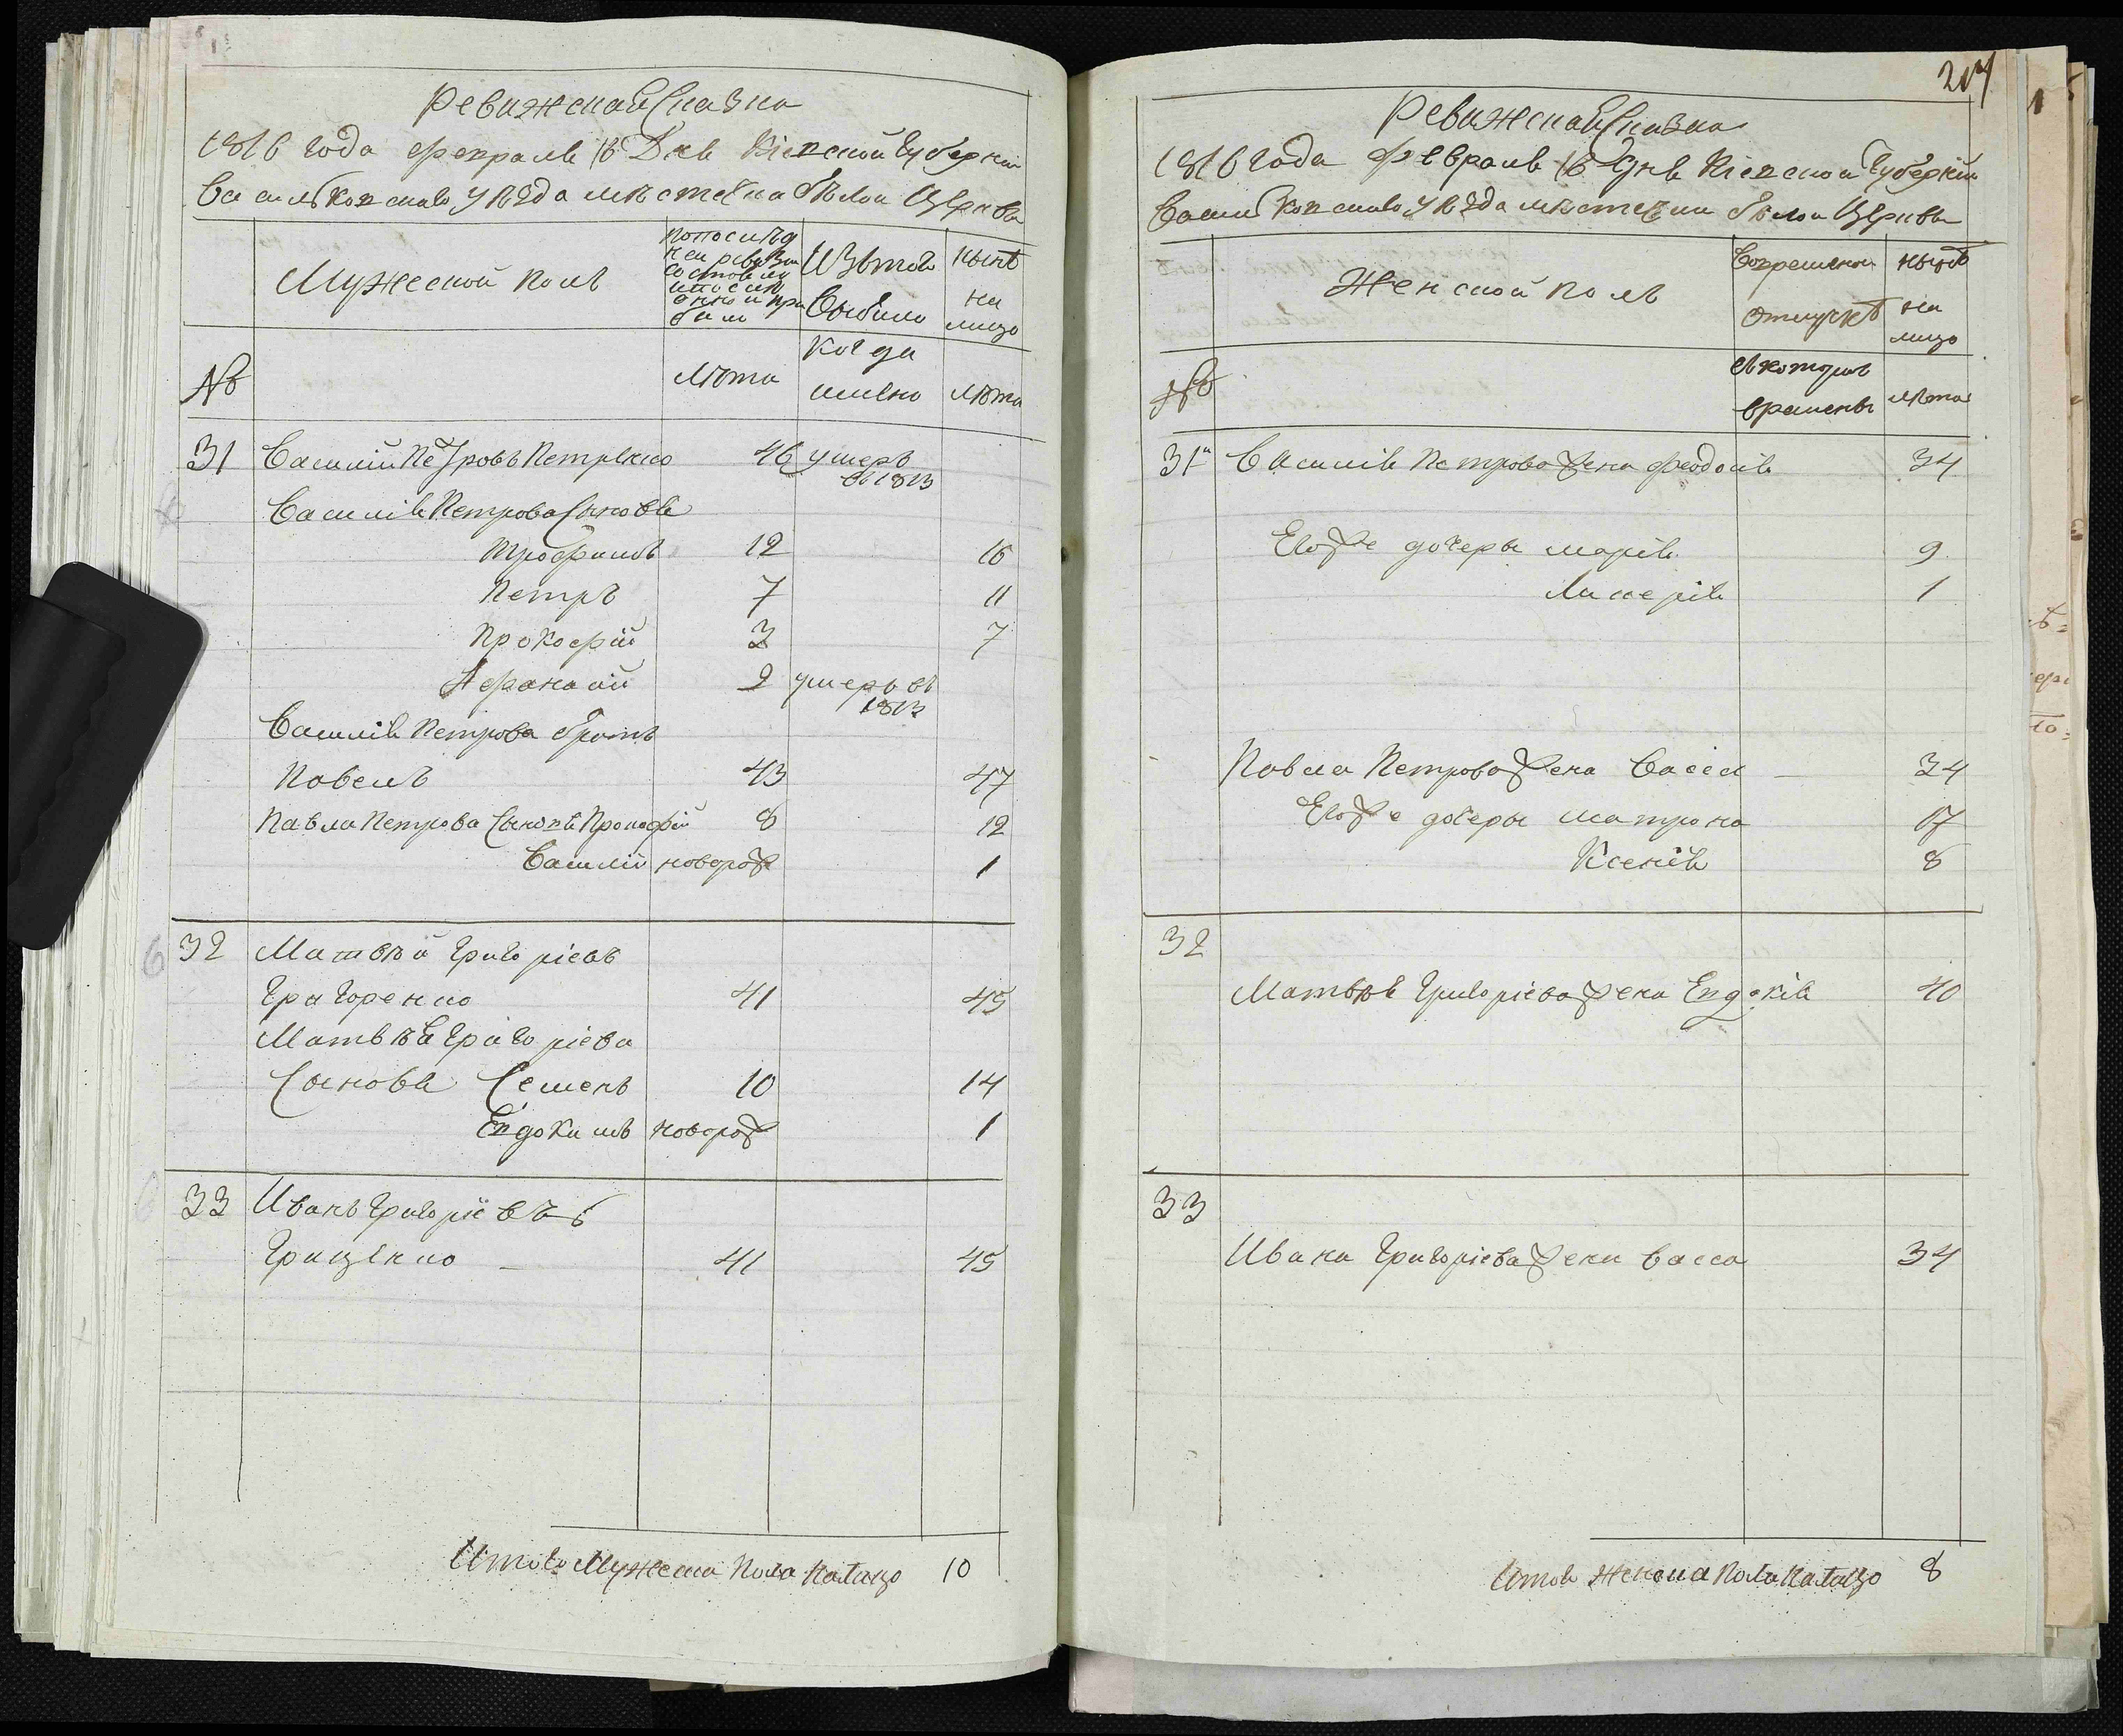 Ревижская Сказка
1816 года февраля 16 Дня Кіевской Губерніи
Васильковскаго Уѣзда мѣстечка бѣлой Церкви
Мужеской полъ
По последней ревизіи состояло и после оной прибыло
Изътого Выбыло
нынѣ на лицо
№
лѣта
Когда имено
лѣта
31 Василій Петровъ Петренко 46 умеръ въ 1813
Василія Петрова Сыновя
Трофимъ 12 16
Петръ 7 11
Прокофій 3 7
Афанасій 2 умеръ въ 1813
Василія Петрова братъ
Павелъ 43 47
Павла Петрова Сыновя Прокофій 8 12
Василій новорож 1
32 Матвѣй Григоріевъ
Григоренко 41 45
Матвѣя Григоріева
Сыновя Семенъ 10 14
Евдокимъ новорож 1
33 Иванъ Григоріевъ
Грищенко 41 45
Итого Мужеска Пола Налицо 10
217
Ревижская Сказка
1816 года февраля 16 Дня Кіевской Губерніи
Васильковскаго Уѣзда мѣстечки бѣлой Церкви
Женской полъ
Вовременной отлучкѣ
нынѣ на лицо
№
съкоторого времены
лѣта
31 Василія Петрова жена Феодосія 34
Егоже дочеры марія 9
Ликерія 1
Павла Петрова жена Васса 34
Егоже дочеры матрона 17
Ксенія 8
32
Матвѣя Григоріева жена Евдокія 40
33
Ивана Григоріева жена васса 34
Итого женска Пола Налицо 8